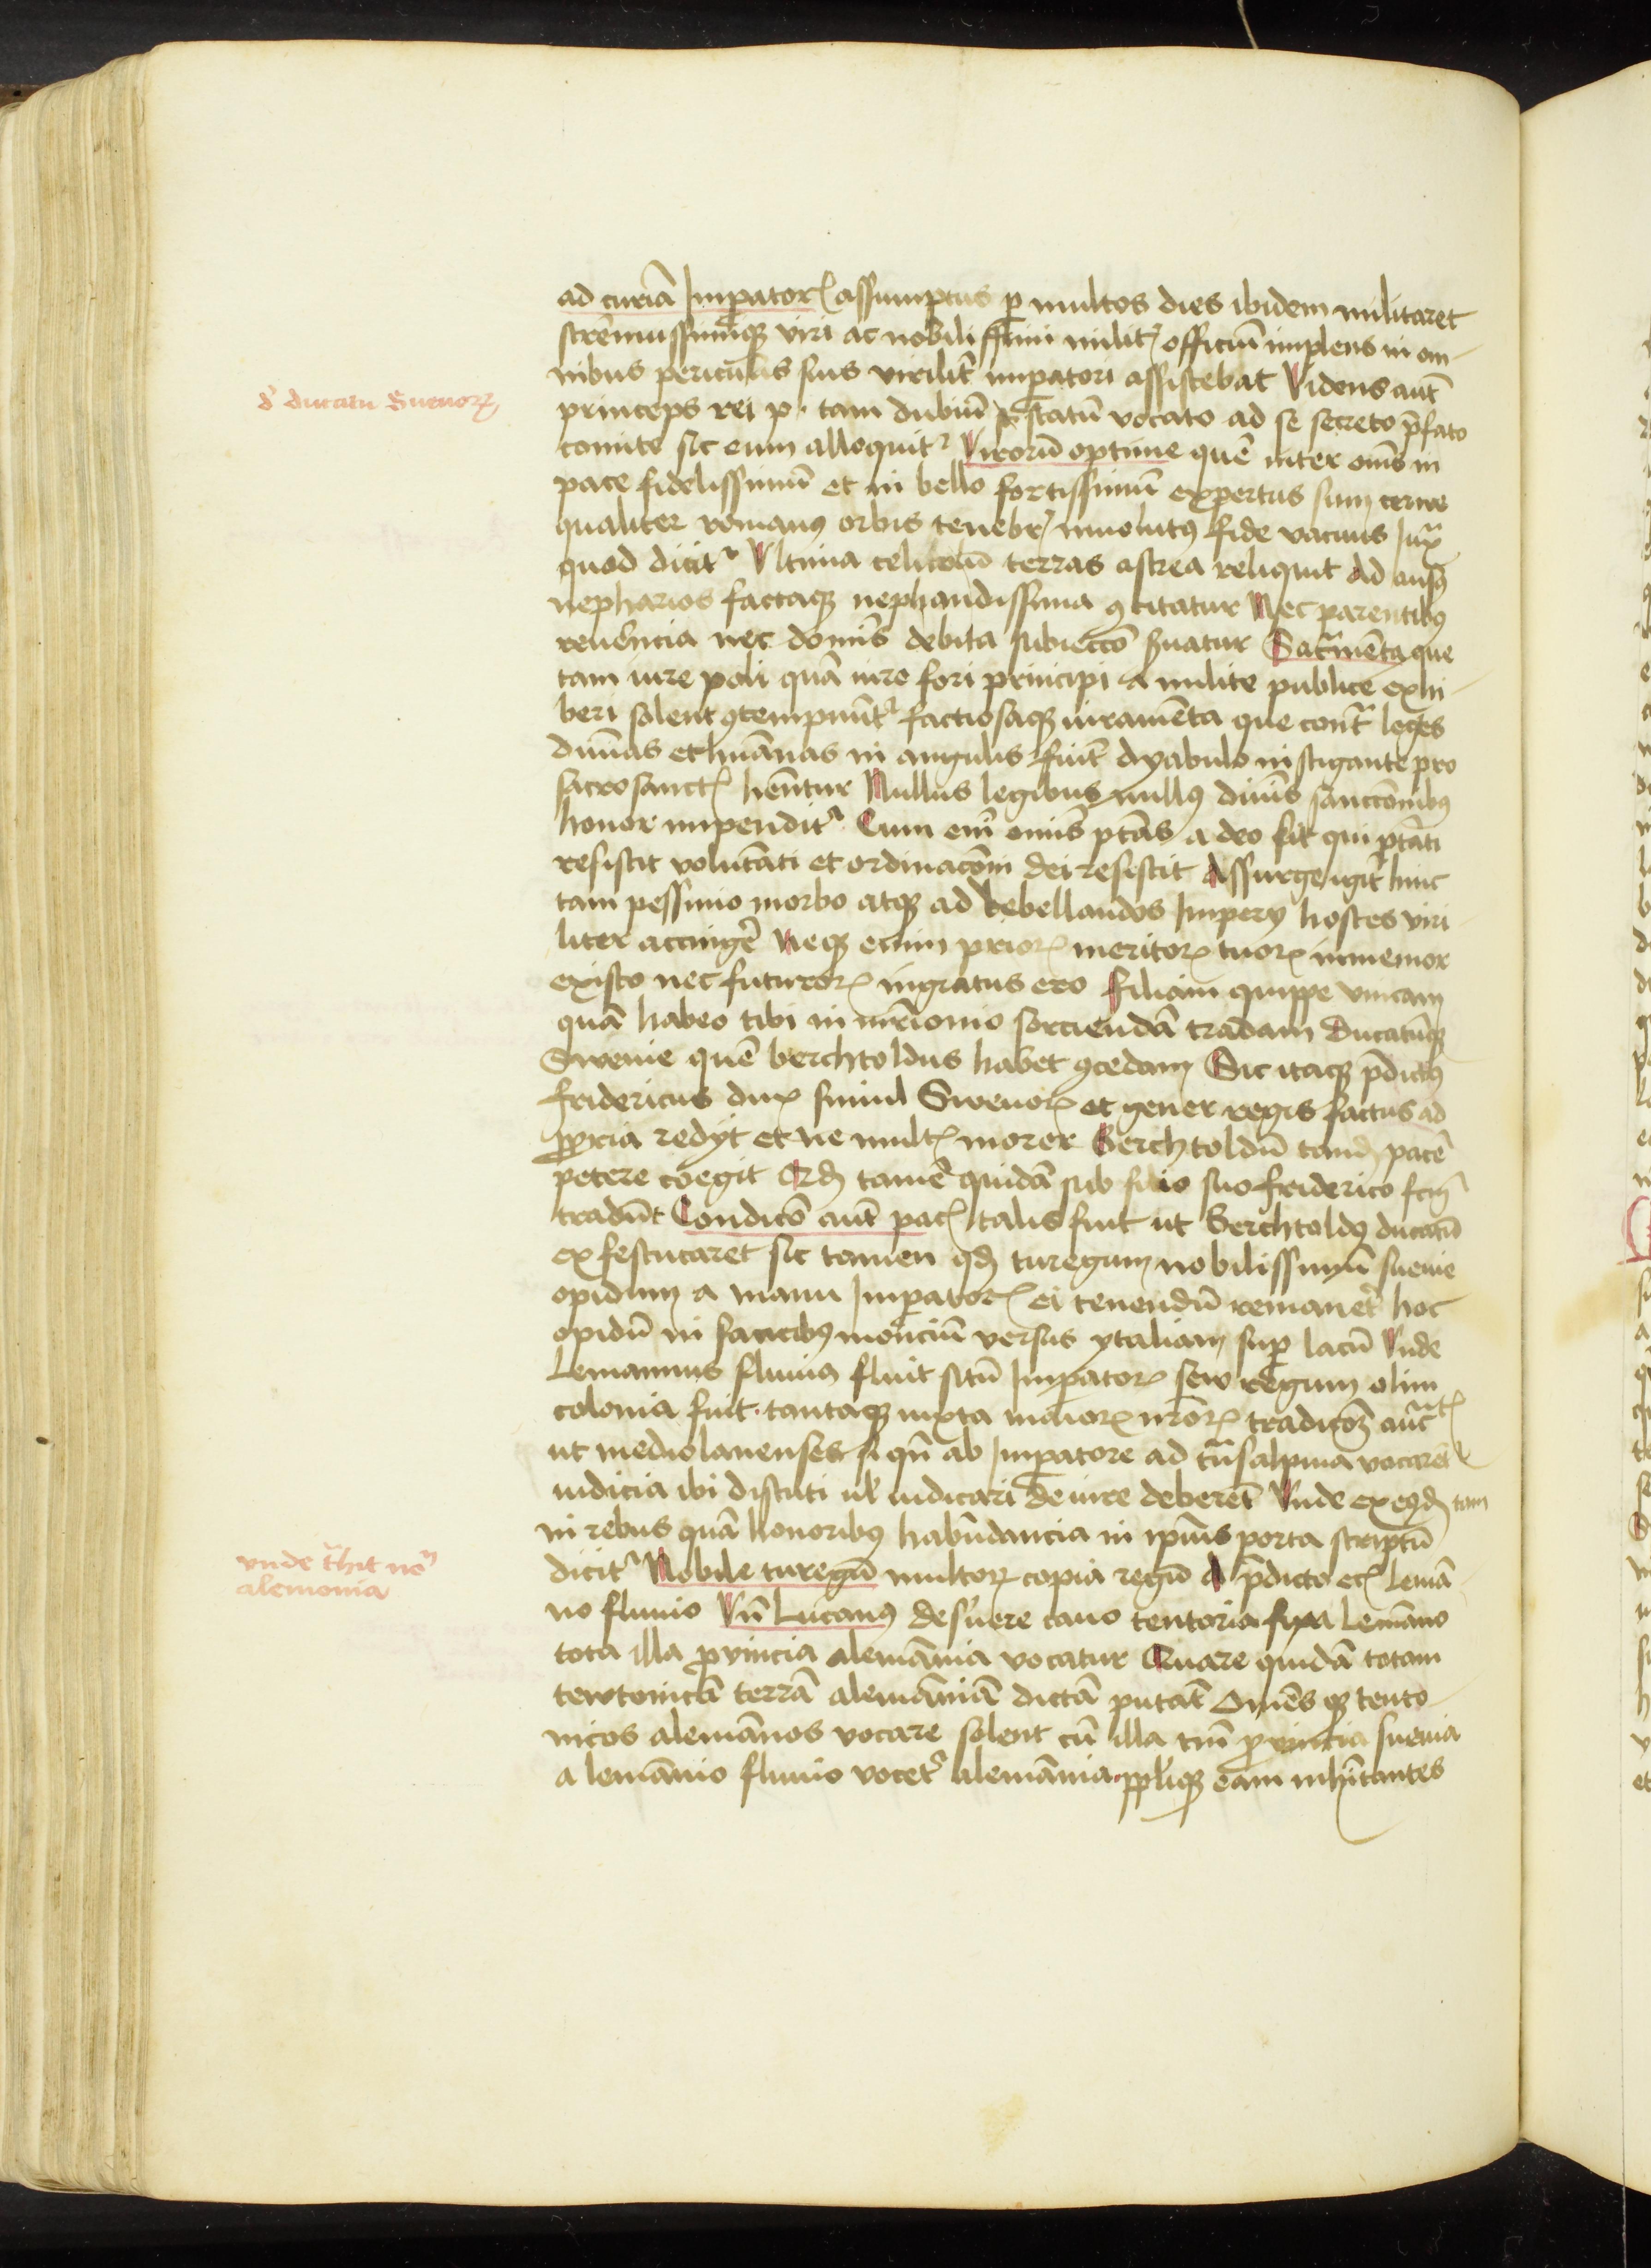 ad curiā Impatoꝝ assumptus ꝑ multos dies ibidem militaret
strēnuissimiqꝫ viri ac nobilissimi milit officiū implens in om-
nibus periculis suis virilit̄ impatori assistebat Videns aut̄
d̄ ducatu Sueuoꝝ
princeps rei p. tam dubiū statū vocato ad se secreto p̄fato
comite sic eum alloquit᷑ Virorū optime quē inter om̄s in
pace fidelissimū et in bello fortissimū expertus sum cerne
qualiter romanꝯ orbis tenebr̄ inuolutꝯ fide vacuus Iux̄
quod dicit᷑ Vltima celicolū terras astrea reliquit ad ausꝯ
nepharios factaqꝫ nephandissima ꝯcitatur Nec parentibꝯ
reuēncia nec domīs debita subiecc̄o s̄uatur Sac̄mēta que
tam iure poli quā iure fori principi a milite publice exhi-
beri solent ꝯtempnūt᷑ factiosaqꝫ iuramēta que cont̄ leges
diuīas et huānas in angulis fiūt dyabulo instigante pro
sacrosanctꝭ hēntur Nullus legibus nullꝯ diuīs sancc̄onibꝯ
honor impendit᷑ Cum em̄ omīs ptās a deo sit qui ptāti
resistit volūtati et ordinac̄oni dei resistit Assurge igit̄ huic
tam pessimo morbo atqꝫ ad debellandos Impery hostes viri-
liter accingē Neqꝫ enim prioꝝ meritoꝝ tuoꝝ inmemor
existo nec futuroꝝ ingratus ero Filiam quippe vnicam
quā habeo tibi in mr̄ionio sorciendā tradam Ducatūqꝫ
Sweuie quē berchtoldus habet ꝯcedam Sic itaqꝫ p̄dictꝯ
fridericus dux simul Sweuoꝝ et gener regis factus ad
ꝓpria redyt et ne multꝭ morer Berchtoldū tand̄ pacē
petere coegit Qd̄ tamē quidā sub filio suo friderico fcm̄
tradūt Condic̄o aut̄ pacꝭ talis fuit ut Berchtoldꝯ ducatū
exfestucaret sic tamen qd̄ turegum nobilissimū sueuie
opidum a manu Impatoꝝ ei tenendū remanet̄ hoc
opidū in faucibꝯ monciū versus ytaliam suꝑ lacū Vnde
Lemannus fluuiꝯ fluit sitū Impatoꝝ sew regum olim
colonia fuit. tantaqꝫ iuxta maioꝝ nr̄oꝝ tradic̄oꝫ auct̄tꝭ
ut mediolanenses si qn̄ ab Impatore ad tn̄salpina vocarēt᷑
iudicia ibi discuti ul̄ iudicari de iure deberēt Vnde ex eqd̄ tam
in rebus quā honoribꝯ habūdancia in ipīus porta scriptū
vnde t̄hit no᷑
alemonia
dicit᷑ Nobile turegū multoꝝ copia regū A p̄dicto ecꝭ Lemā-
no fluuio Vn̄ Lucanꝯ des̄uere cauo tentoria fixa Lemāno
tota illa ꝓvincia alemānia vocatur Quare quidā totam
tewtonicā terrā alemāniā dictā putāt Omēs qꝫ teuto-
nicos alemānos vocare solent cū illa tm̄ ꝓvincia sueuia
a lemānno fluuio vocet᷑ alemānia. ppl̄iqꝫ eam inhītantes